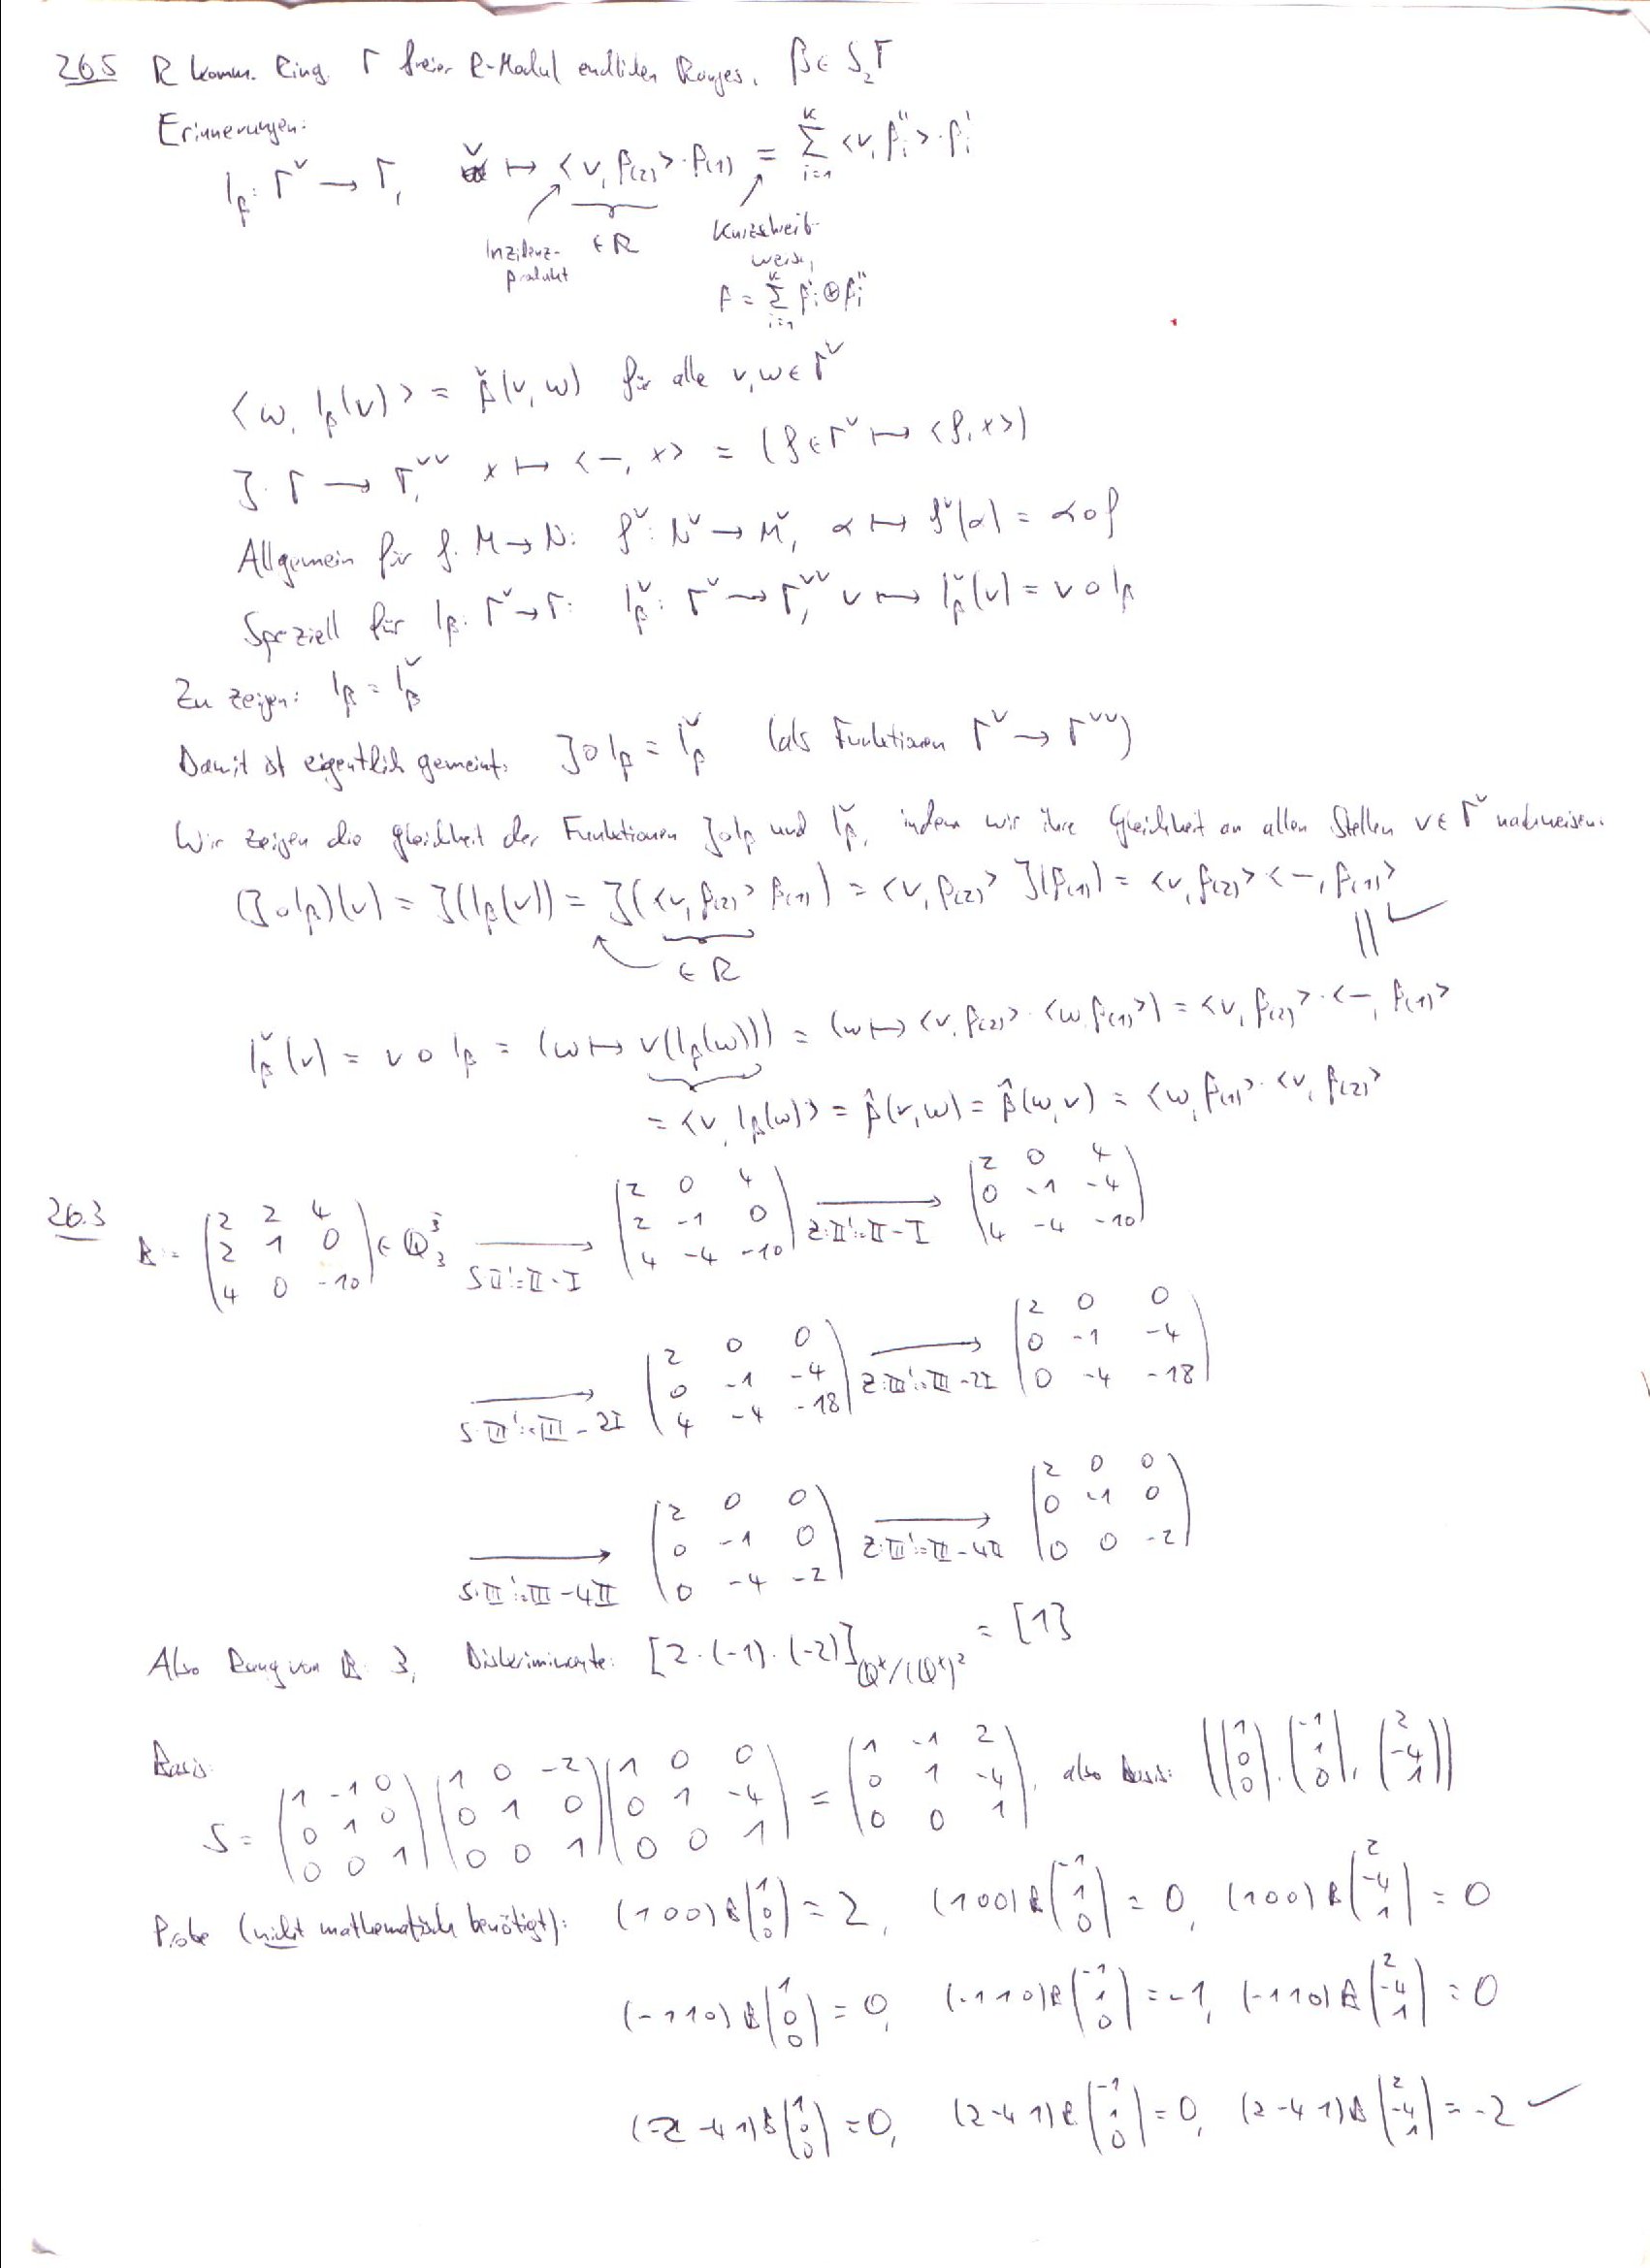 26.5 R komm. Ring. Γ freier R-Modul endlichen Ranges, β ∈ S₂Γ
Erinnerungen:
l_β: Γ^∨ → Γ, v ↦ <v, β₍₂₎>·β₍₁₎ = Σ_{i=1}^k <v, β_i''>·β_i'
Inzidenz-
produkt
∈ R
Kurzschreib-
weise,
β = Σ_{i=1}^k β_i' ⊗ β_i''
<w, l_β(v)> = β̌(v, w) für alle v, w ∈ Γ^∨
J: Γ → Γ^∨∨, x ↦ <–, x> = (f ∈ Γ^∨ ↦ <f, x>)
Allgemein für f: M → N: f^∨: N^∨ → M^∨, α ↦ f^∨(α) = α∘f
Speziell für l_β: Γ^∨ → Γ: l_β^∨: Γ^∨ → Γ^∨∨, v ↦ l_β^∨(v) = v∘l_β
Zu zeigen: l_β = l_β^∨
Damit ist eigentlich gemeint: J∘l_β = l_β^∨ (als Funktionen Γ^∨ → Γ^∨∨)
Wir zeigen die Gleichheit der Funktionen J∘l_β und l_β^∨, indem wir ihre Gleichheit an allen Stellen v ∈ Γ^∨ nachweisen.
(J∘l_β)(v) = J(l_β(v)) = J(<v, β₍₂₎> β₍₁₎) = <v, β₍₂₎> J(β₍₁₎) = <v, β₍₂₎> <–, β₍₁₎>
∈ R
|| ✓
l_β^∨(v) = v∘l_β = (w ↦ v(l_β(w))) = (w ↦ <v, β₍₂₎>·<w, β₍₁₎>) = <v, β₍₂₎>·<–, β₍₁₎>
= <v, l_β(w)> = β̂(v, w) = β̂(w, v) = <w, β₍₁₎>·<v, β₍₂₎>
26.3 B := (2 2 4; 2 1 0; 4 0 -10) ∈ ℚ₃³ → S: II' := II - I (2 0 4; 2 -1 0; 4 -4 -10) → Z: II' := II - I (2 0 4; 0 -1 -4; 4 -4 -10)
→ S: III' := III - 2I (2 0 0; 0 -1 -4; 4 -4 -18) → Z: III' := III - 2I (2 0 0; 0 -1 -4; 0 -4 -18)
→ S: III' := III - 4II (2 0 0; 0 -1 0; 0 -4 -2) → Z: III' := III - 4II (2 0 0; 0 -1 0; 0 0 -2)
Also Rang von B: 3, Diskriminante: [2·(-1)·(-2)]_{ℚ^×/(ℚ^×)²} = [1]
Basis:
S = (1 -1 0; 0 1 0; 0 0 1) (1 0 -2; 0 1 0; 0 0 1) (1 0 0; 0 1 -4; 0 0 1) = (1 -1 2; 0 1 -4; 0 0 1), also Basis: ((1; 0; 0), (-1; 1; 0), (2; -4; 1))
Probe (nicht mathematisch benötigt): (1 0 0) B (1; 0; 0) = 2, (1 0 0) B (-1; 1; 0) = 0, (1 0 0) B (2; -4; 1) = 0
(-1 1 0) B (1; 0; 0) = 0, (-1 1 0) B (-1; 1; 0) = -1, (-1 1 0) B (2; -4; 1) = 0
(2 -4 1) B (1; 0; 0) = 0, (2 -4 1) B (-1; 1; 0) = 0, (2 -4 1) B (2; -4; 1) = -2 ✓